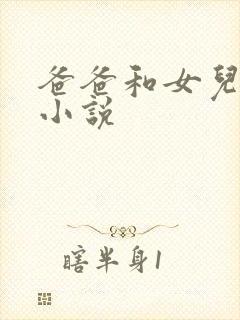 爸爸和女兒
小說
瞎半身1